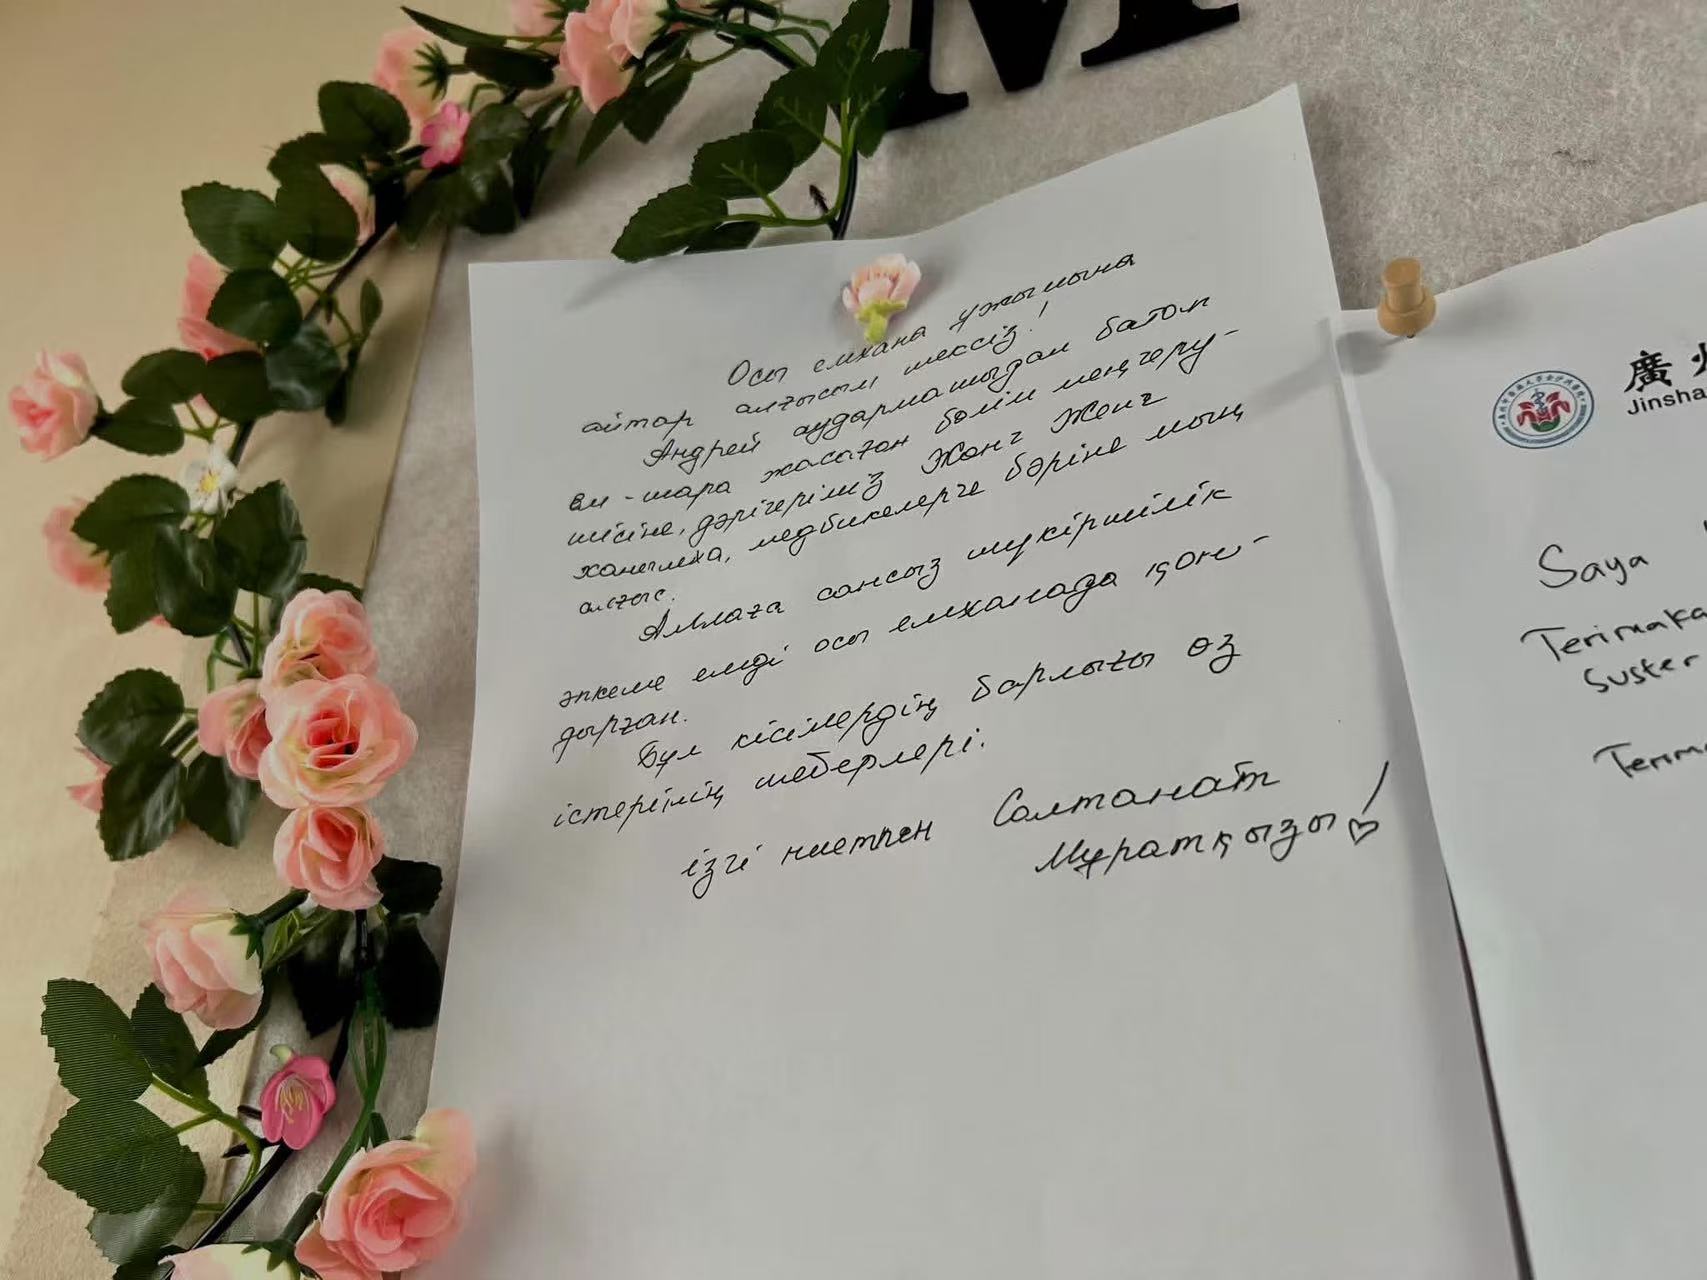 Осы емхана ұжымына
айтар алғысым шексіз!
Андрей аудармашыдан бастап
ем-шара жасаған бөлім меңгеру-
шісіне, дәрігеріміз Жонг Женг
ханымға, медбикелерге бәріне мың
алғыс.
Аллаға сансыз шүкіршілік
әпкеме емді осы емханада қон-
дырған.
Бұл кісілердің барлығы өз
істерінің шеберлері.
ізгі ниетпен Салтанат
Мұратқызы!
廣
Jinsha
Saya
Terimaka
Suster
Terima